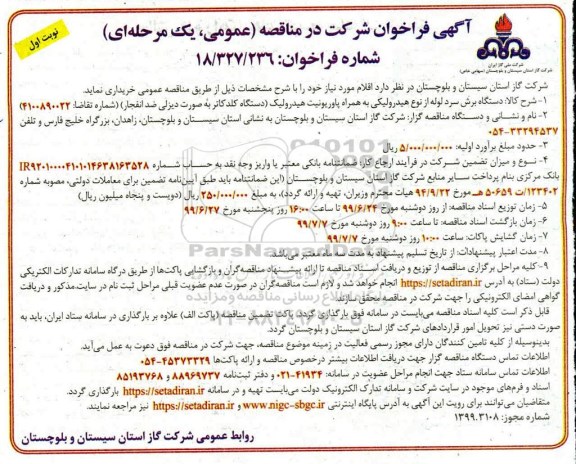 نوبت اول
آگهی فراخوان شرکت در مناقصه (عمومی، یک مرحله‌ای)
شماره فراخوان: ۱۸/۳۲۷/۲۳۶
شرکت ملی گاز ایران
شرکت گاز استان سیستان و بلوچستان (سهامی خاص)
شرکت گاز استان سیستان و بلوچستان در نظر دارد اقلام مورد نیاز خود را با شرح مشخصات ذیل از طریق مناقصه عمومی خریداری نماید.
۱- شرح کالا: دستگاه برش سرد لوله از نوع هیدرولیکی به همراه پاوریونیت هیدرولیک (دستگاه کلدکاتر به صورت دیزلی ضد انفجار) (شماره تقاضا: ۴۱۰۰۸۹۰۰۲۲)
۲- نام و نشانی و دستگاه مناقصه گزار: شرکت گاز استان سیستان و بلوچستان به نشانی استان سیستان و بلوچستان، زاهدان، بزرگراه خلیج فارس و تلفن
۰۵۴-۳۳۲۹۴۵۳۷
۳- حدود مبلغ برآورد اولیه: ۵/۰۰۰/۰۰۰/۰۰۰ ریال
۴- نوع و میزان تضمین شرکت در فرآیند ارجاع کار: ضمانتنامه بانکی معتبر یا واریز وجه نقد به حساب شماره IR۹۲۰۱۰۰۰۰۴۱۰۱۰۱۴۶۳۸۱۶۳۵۲۸
بانک مرکزی بنام پرداخت سایر منابع شرکت گاز استان سیستان و بلوچستان (این ضمانتنامه باید طبق آیین‌نامه تضمین برای معاملات دولتی، مصوبه شماره
۱۲۳۴۰۲/ت ۵۰۶۵۹ هـ مورخ ۹۴/۹/۲۲ هیات محترم وزیران، تهیه و ارائه گردد)، به مبلغ ۲۵۰/۰۰۰/۰۰۰ ریال (دویست و پنجاه میلیون ریال)
۵- زمان توزیع اسناد مناقصه: از روز دوشنبه مورخ ۹۹/۶/۲۴ تا ساعت ۱۶:۰۰ روز پنجشنبه مورخ ۹۹/۶/۲۷
۶- زمان بازگشت اسناد مناقصه: تا ساعت ۹:۰۰ روز دوشنبه مورخ ۹۹/۷/۷
۷- زمان گشایش پاکات: ساعت ۱۰:۰۰ روز دوشنبه مورخ ۹۹/۷/۷
۸- مدت اعتبار پیشنهادات: از تاریخ تسلیم پیشنهاد به مدت سه ماه معتبر می‌باشد.
۹- کلیه مراحل برگزاری مناقصه از توزیع و دریافت اسناد مناقصه تا ارائه پیشنهاد مناقصه‌گران و بازگشایی پاکت‌ها از طریق درگاه سامانه تدارکات الکتریکی
دولت (ستاد) به آدرس https://setadiran.ir انجام خواهد شد و لازم است مناقصه‌گران در صورت عدم عضویت قبلی مراحل ثبت نام در سایت مذکور و دریافت
گواهی امضای الکترونیکی را جهت شرکت در مناقصه محقق سازند.
قابل ذکر است کلیه اسناد مناقصه می‌بایست در سامانه فوق بارگذاری گردد. پاکت تضمین مناقصه (پاکت الف) علاوه بر بارگذاری در سامانه ستاد ایران، باید به
صورت دستی نیز تحویل امور قراردادهای شرکت گاز استان سیستان و بلوچستان گردد.
بدینوسیله از کلیه تامین کنندگان دارای مجوز رسمی فعالیت در زمینه موضوع مناقصه، جهت شرکت در مناقصه فوق دعوت به عمل می‌آید.
اطلاعات تماس دستگاه مناقصه گزار جهت دریافت اطلاعات بیشتر درخصوص مناقصه و ارائه پاکت‌ها ۰۵۴-۴۵۳۷۳۳۲۹
اطلاعات تماس سامانه ستاد جهت انجام مراحل عضویت در سامانه: ۰۲۱-۴۱۹۳۴ و دفتر ثبت‌نامه ۸۸۹۶۹۷۳۷ و ۸۵۱۹۳۷۶۸
اسناد و فرم‌های موجود در سایت شرکت و سامانه تدارک الکترونیک دولت می‌بایست تهیه و در سامانه https://setadiran.ir بارگذاری گردد.
متقاضیان می‌توانند برای رویت این آگهی به آدرس پایگاه اینترنتی www.nigc-sbgc.ir و https://setadiran.ir نیز مراجعه نمایند.
شماره مجوز: ۱۳۹۹.۳۱۰۸
روابط عمومی شرکت گاز استان سیستان و بلوچستان
ParsNamadData